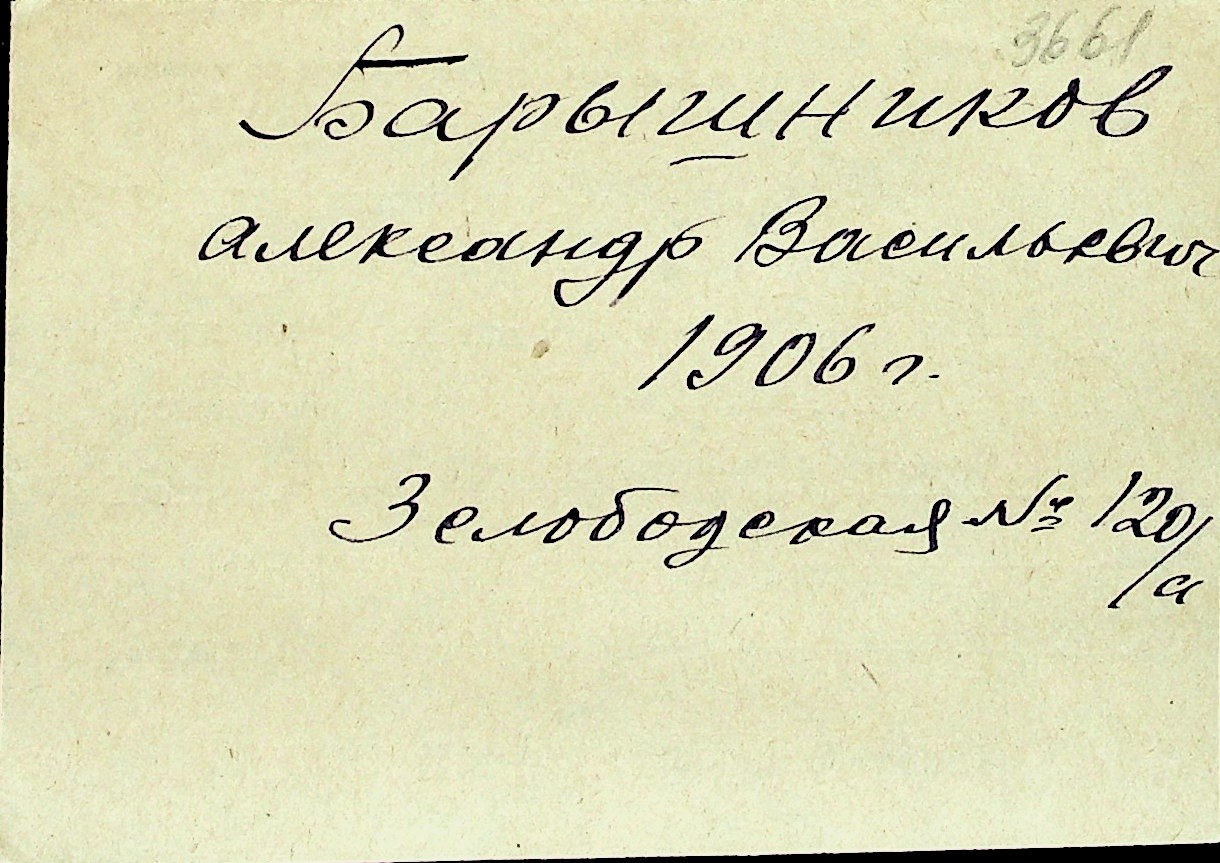 3661
Барышников
Александр Васильевич
1906 г.
Зелободская № 120/а